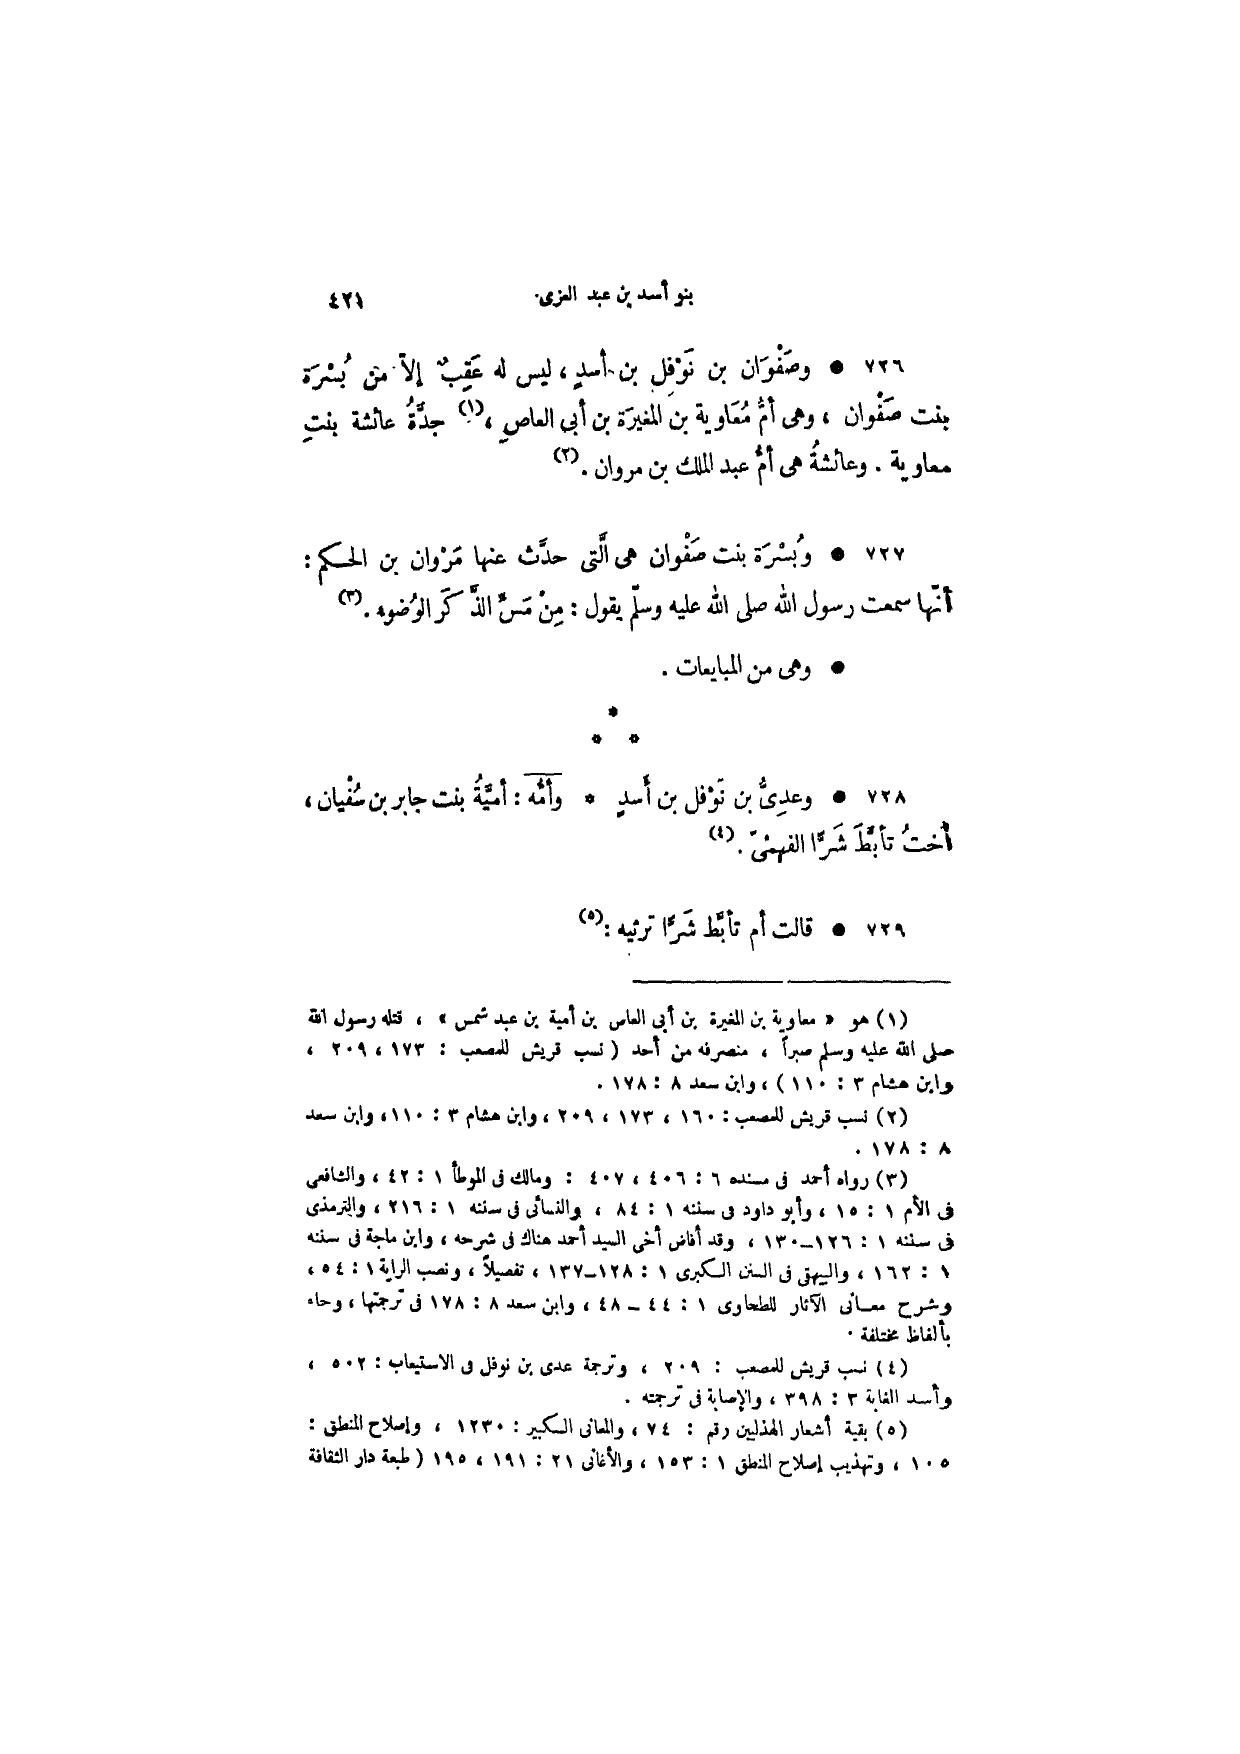 بنو أسد بن عبد العزى ٤٢١
٧٢٦ ● وصَفْوَان بن نَوْفلِ بن أسدٍ ، ليس له عَقِبٌ إلاّ من بُسْرَة
بنت صَفْوان ، وهى أمُّ مُعَاوية بن المغيرَة بن أبى العاصِ ،(١) جدَّةُ عائشة بنتِ
معاوية . وعائشةُ هى أمُّ عبد الملك بن مروان .(٢)
٧٢٧ ● وبُسْرَة بنت صَفْوان هى الَّتى حدَّث عنها مَرْوان بن الحكم :
أنّها سمعت رسول الله صلى الله عليه وسلّم يقول : مِنْ مَسِّ الذَّكَر الوُضوء .(٣)
● وهى من المبايعات .
*
* *
٧٢٨ ● وعدِىُّ بن نَوْفل بن أَسدٍ * وأمُّه : أميَّةُ بنت جابر بن سُفْيان ،
أُختُ تأبَّطَ شَرًّا الفهمْىّ .(٤)
٧٢٩ ● قالت أم تأبَّط شَرًّا ترثيه :(٥)
(١) هو « معاوية بن المغيرة بن أبى العاص بن أمية بن عبد شمس » ، قتله رسول الله
صلى الله عليه وسلم صبراً ، منصرفه من أحد ( نسب قريش للمصعب : ١٧٣ ، ٢٠٩ ،
وابن هشام ٣ : ١١٠ ) ، وابن سعد ٨ : ١٧٨ .
(٢) نسب قريش للمصعب : ١٦٠ ، ١٧٣ ، ٢٠٩ ، وابن هشام ٣ : ١١٠ ، وابن سعد
٨ : ١٧٨ .
(٣) رواه أحمد فى مسنده ٦ : ٤٠٦ ، ٤٠٧ : ومالك فى الموطأ ١ : ٤٢ ، والشافعى
فى الأم ١ : ١٥ ، وأبو داود فى سننه ١ : ٨٤ ، والنسائى فى سننه ١ : ٢١٦ ، والترمذى
فى سننه ١ : ١٢٦–١٣٠ ، وقد أفاض أخى السيد أحمد هناك فى شرحه ، وابن ماجة فى سننه
١ : ١٦٢ ، والبيهقى فى السنن الكبرى ١ : ١٢٨–١٣٧ ، تفصيلاً ، ونصب الراية ١ : ٥٤ ،
وشرح معانى الآثار للطحاوى ١ : ٤٤ – ٤٨ ، وابن سعد ٨ : ١٧٨ فى ترجمتها ، وجاء
بألفاظ مختلفة .
(٤) نسب قريش للمصعب : ٢٠٩ ، وترجمة عدى بن نوفل فى الاستيعاب : ٥٠٢ ،
وأسد الغابة ٣ : ٣٩٨ ، والإصابة فى ترجمته .
(٥) بقية أشعار الهذليين رقم : ٧٤ ، والمعانى الكبير : ١٢٣٠ ، وإصلاح المنطق :
١٠٥ ، وتهذيب إصلاح المنطق ١ : ١٥٣ ، والأغانى ٢١ : ١٩١ ، ١٩٥ ( طبعة دار الثقافة